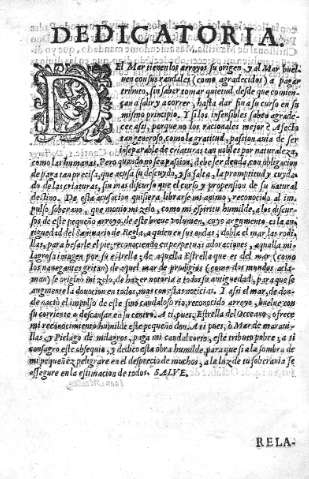 DEDICATORIA
DEl Mar tienen los arroyos su origen, y al Mar buel-
ven con sus raudales (como agradecidos) a pagar
tributo, sin saber tomar quietud, desde que comien-
çan a salir y a correr, hasta dar fin a su curso en su
mismo principio. Y si los insensibles saben agrade-
cer assi, porque no los racionales mejor? Afecto
tan generoso, como la gratitud, passion ania de ser
inseparable de criaturas tan nobles por naturaleza,
como las humanas. Pero quando no sea passion, debe ser deuda, con obligacion
de paga tan precisa, que acusa su descuydo, y su falta, la promptitud y cuyda-
do de las criaturas, sin mas discurso que el curso y propension de su natural
destino. De esta acusacion quisiera librarse mi animo, reconocido al im-
pulso soberano, que movio mi zelo, como mi espiritu humilde, a los discur-
sos de este pequeño arroyo, de este breve volumen, cuyo assumpto es la an-
tiguedad del Santuario de Regla, a quien en sus ondas, dobla el mar, las rodi-
llas, para besarle el pie, reconociendo en perpetuas adoraciones, a aquella mi-
lagrosa imagen por su estrella; de aquella Estrella que es del mar (como
los navegantes gritan) de aquel mar de prodigios (como dos mundos acla-
man) se originò mi zelo, de hazer notoria a todos su antiguedad, para que se
augmente la devocion en todos, mas constante
Y assi el mar, de don-
de naciò el impulso de este sino caudaloso rio, reconocido arroyo, buelve con
su corriente o descansar en su centro. A ti, pues, Estrella del Occeano, ofrece
mi reconocimiento humilde este pequeño don. A ti pues, ò Mar de maravi-
llas, y Pielago de milagros, paga mi caudal corto, este tributo pobre; a ti
consagro este obsequio, y dedico esta obra humilde, para que si a la sombra de
mi pequeñez peligrare en el desprecio de muchos, a la luz de tu soberania se
assegure en la estimacion de todos. SALVE.
RELA-